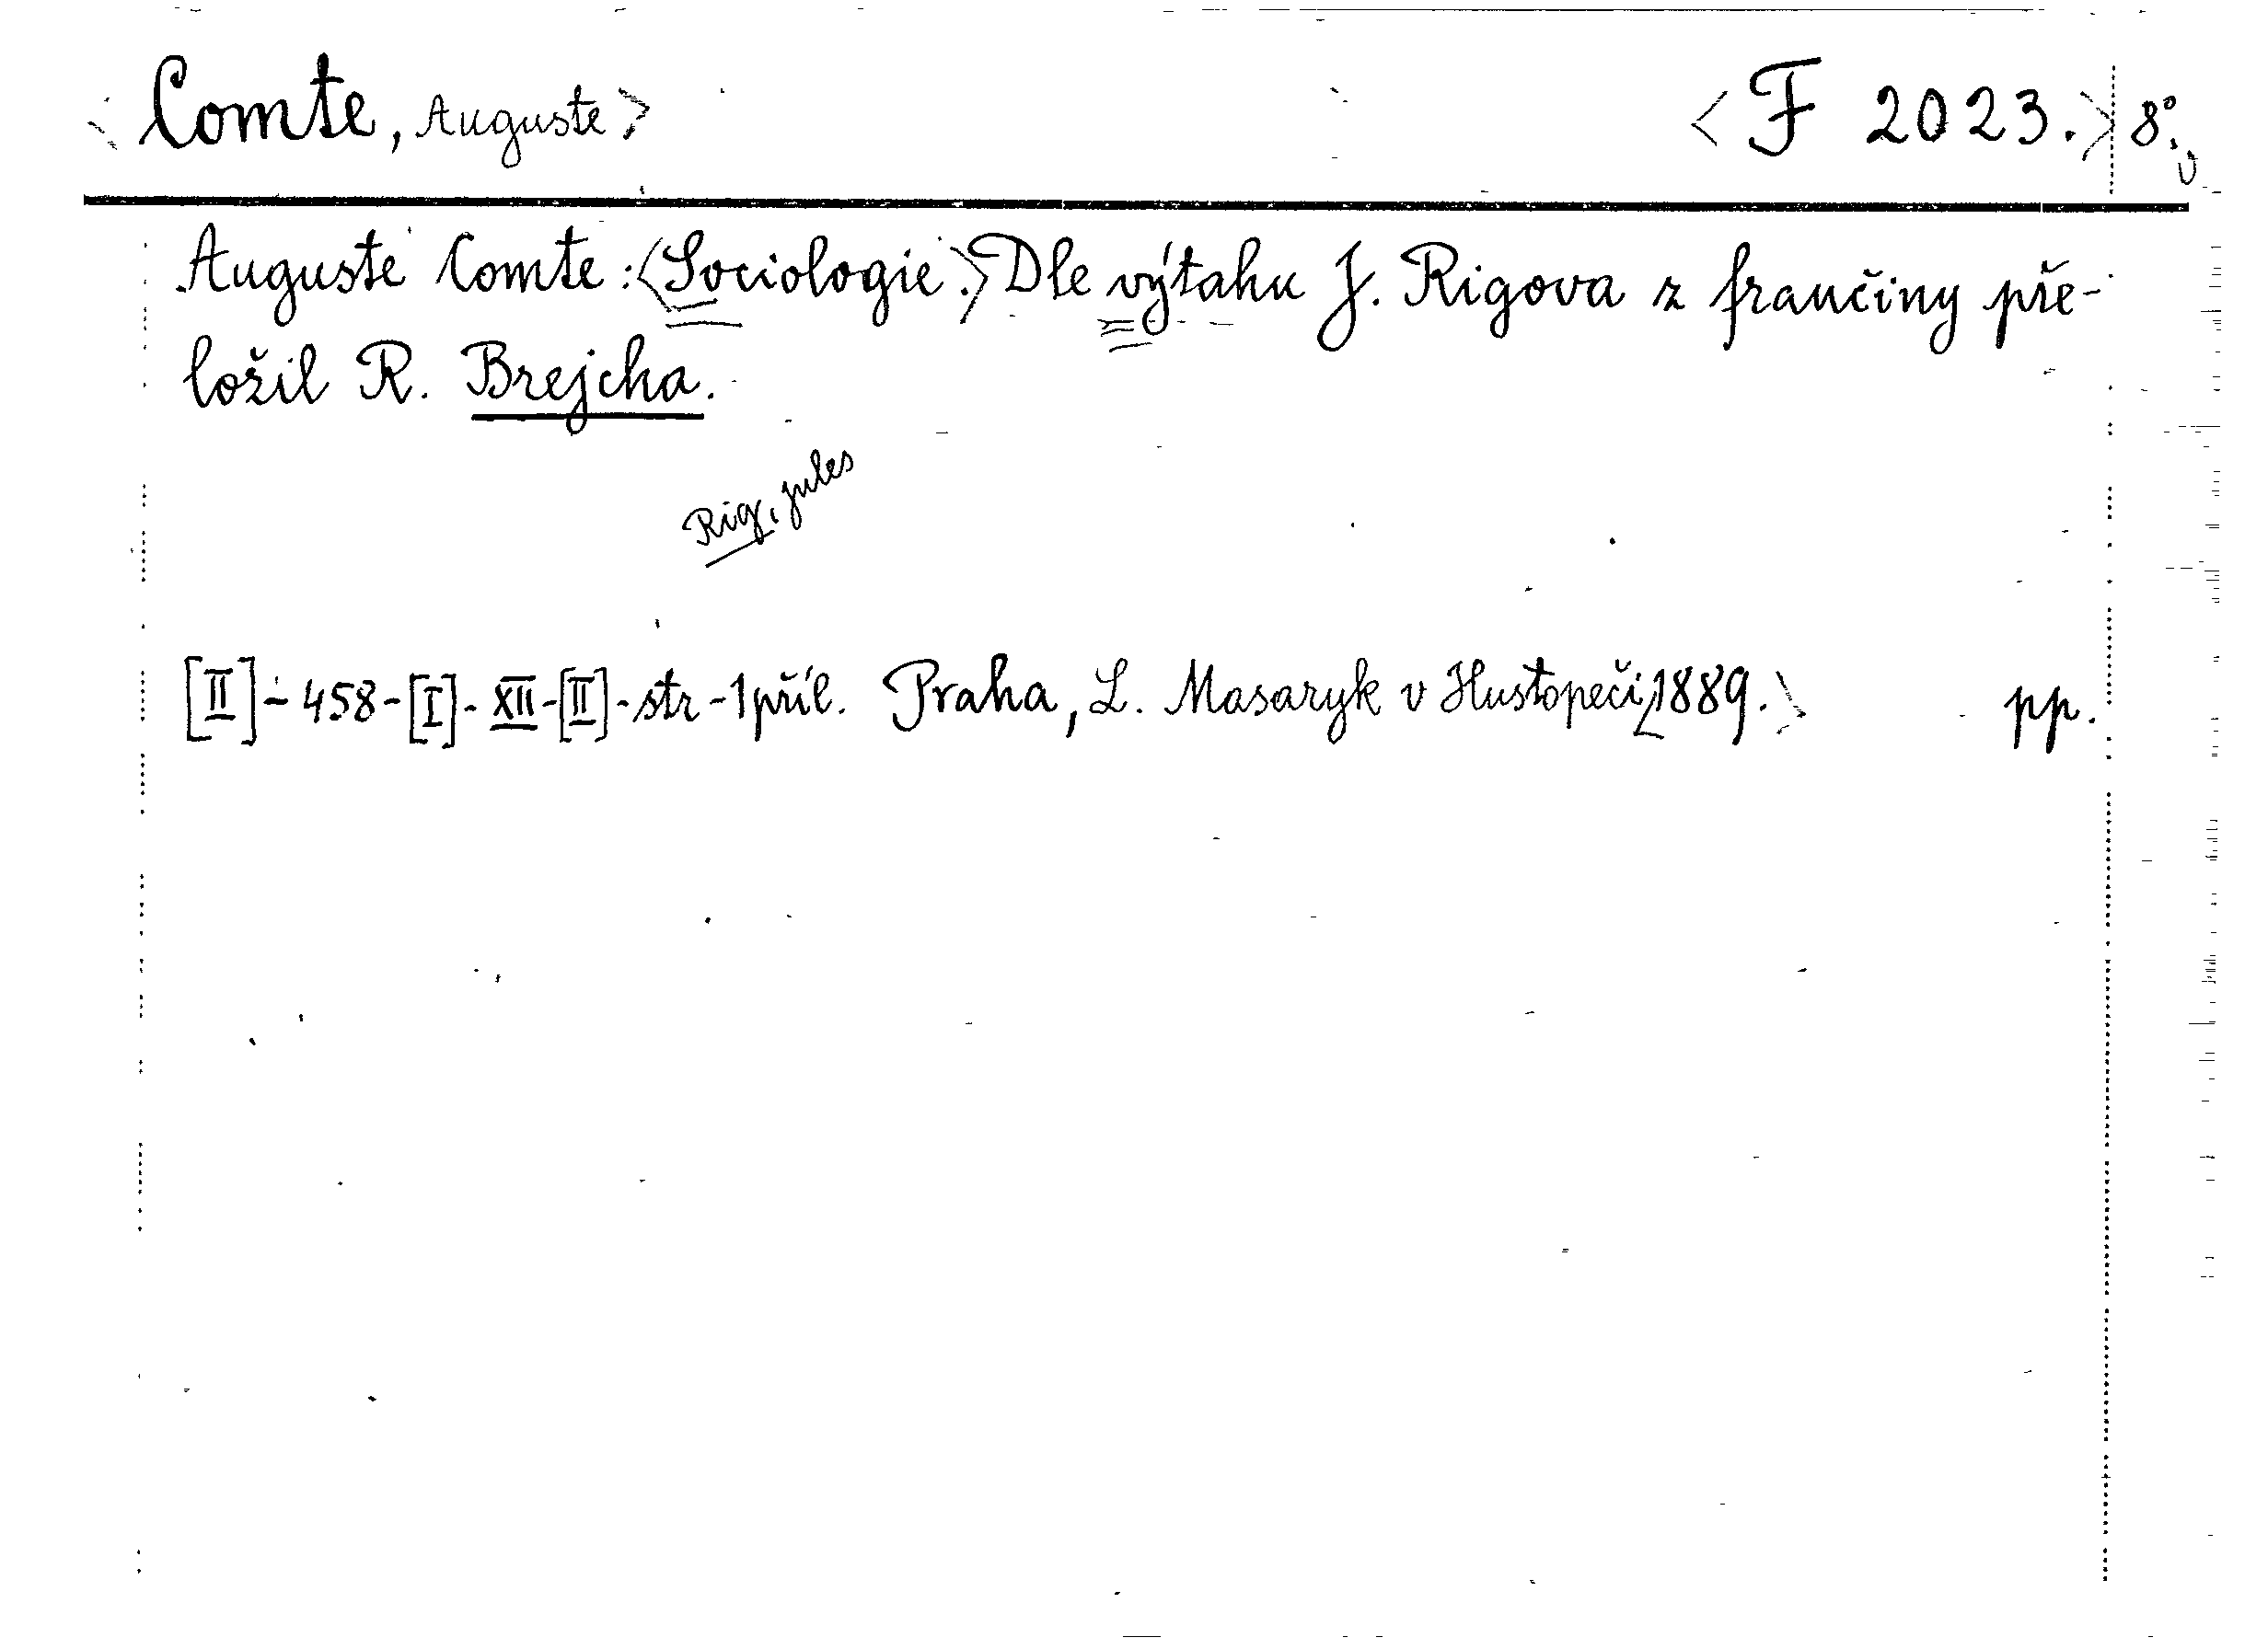 <Comte, Auguste> <F 2023.> 8°.
Auguste Comte: <Sociologie.> Dle výtahu J. Rigova z frančiny pře-
ložil R. Brejcha.
Rig, Jules
[II] - 458 - [I] - XII - [II] - str - 1 příl. Praha, L. Masaryk v Hustopeči, <1889.> pp.